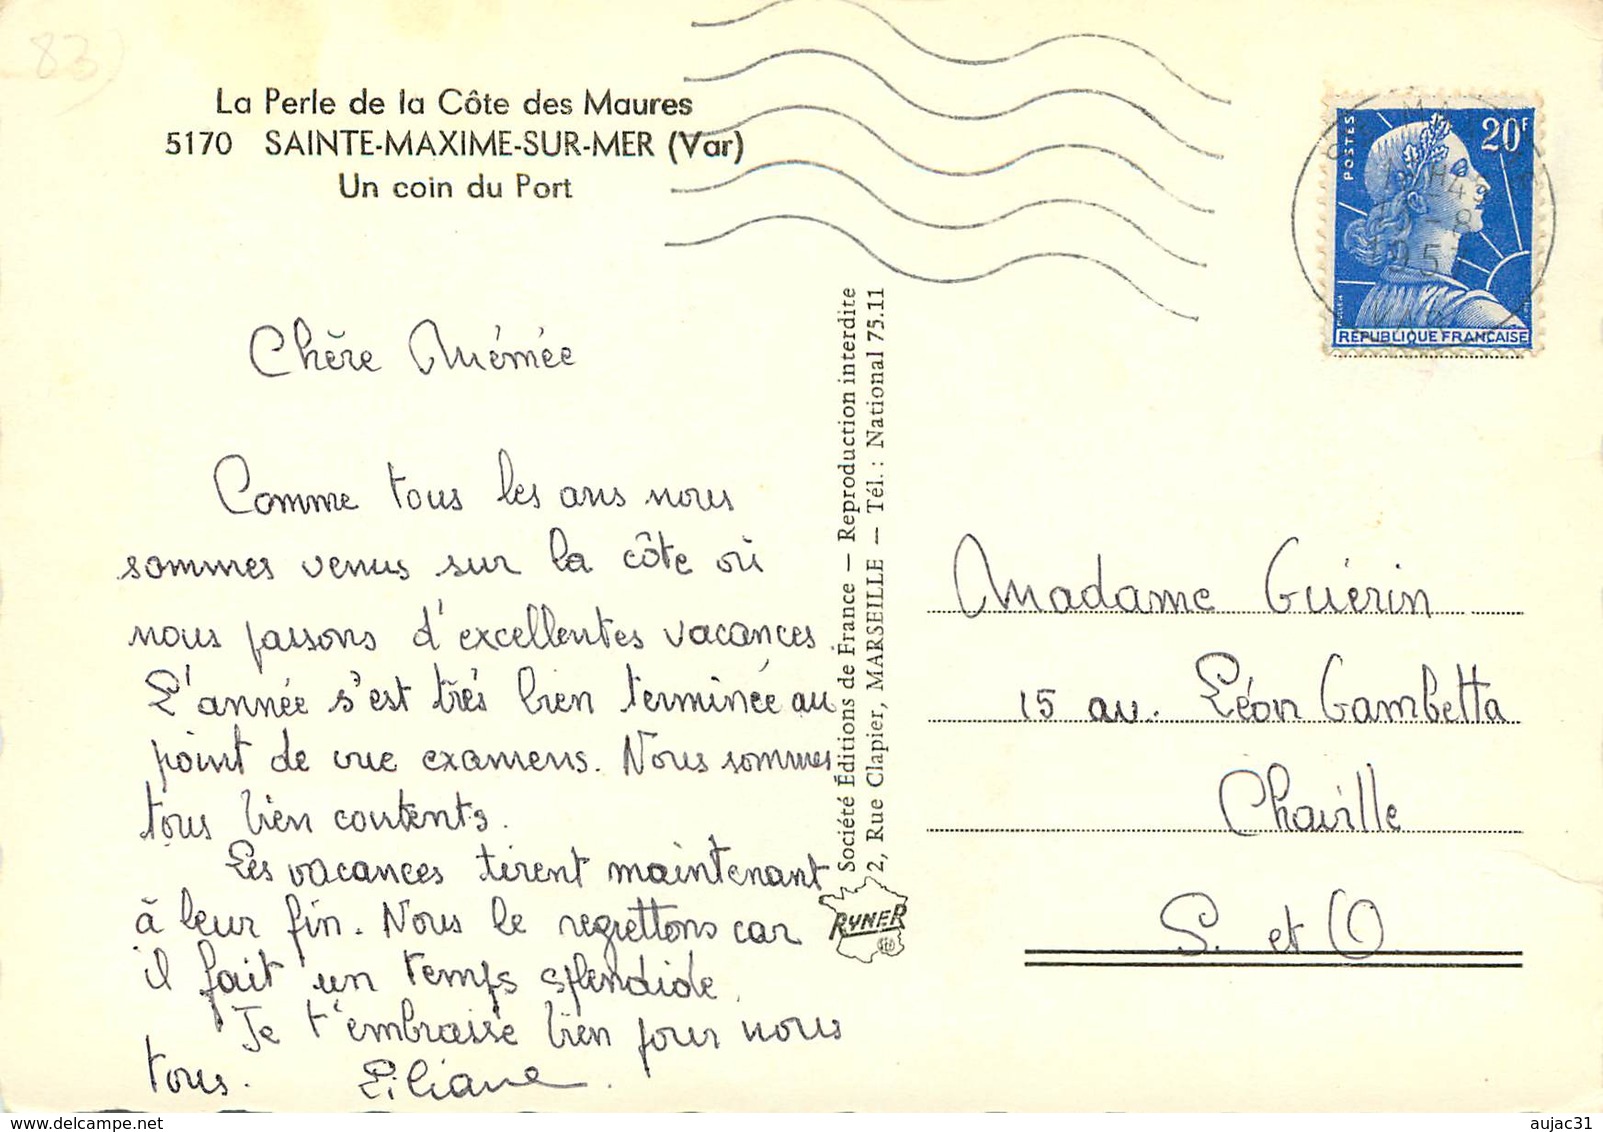 83)
La Perle de la Côte des Maures
5170 SAINTE-MAXIME-SUR-MER (Var)
Un coin du Port
POSTES
20F
1957
VAR
RÉPUBLIQUE FRANÇAISE
Chère Mémée
Comme tous les ans nous
sommes venus sur la côte où
nous passons d'excellentes vacances
L'année s'est très bien terminée au
point de vue examens. Nous sommes
tous bien contents.
Les vacances tirent maintenant
à leur fin. Nous le regrettons car
il fait un temps splendide.
Je t'embrasse bien pour nous
tous. Liliane.
Société Éditions de France — Reproduction interdite
2, Rue Clapier, MARSEILLE — Tél. : National 75.11
RYNER
Madame Guérin
15 av. Léon Gambetta
Chaville
S. et O
www.delcampe.net
aujac31